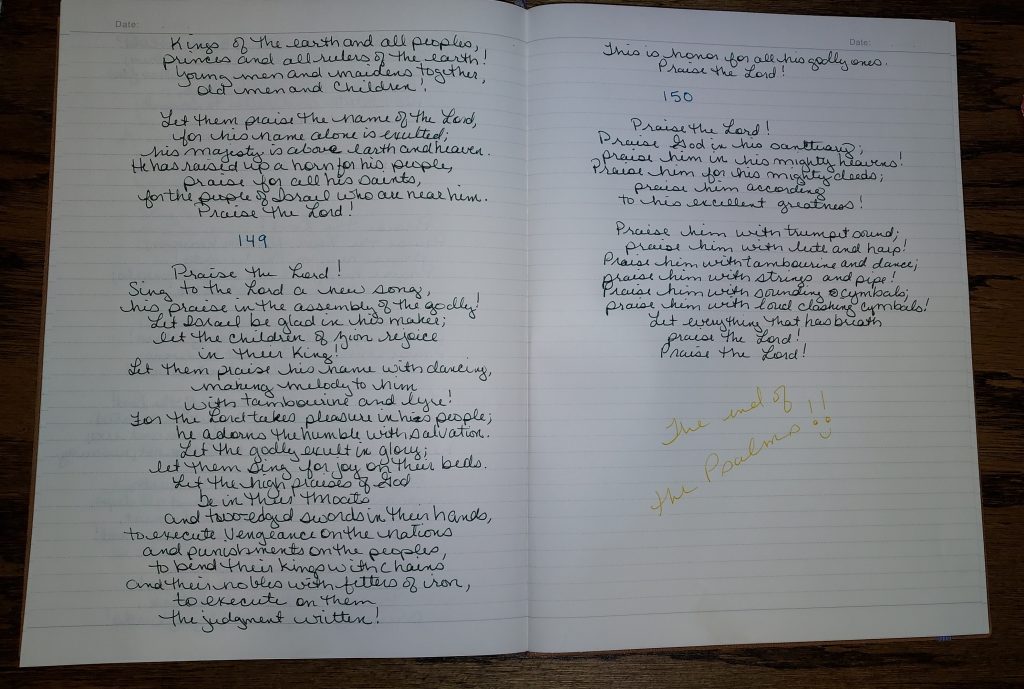 Date:
Kings of the earth and all peoples,
princes and all rulers of the earth!
Young men and maidens together,
old men and children!
Let them praise the name of the Lord,
for his name alone is exulted;
his majesty is above earth and heaven.
He has raised up a horn for his people,
praise for all his saints,
for the people of Israel who are near him.
Praise the Lord!
149
Praise the Lord!
Sing to the Lord a new song,
his praise in the assembly of the godly!
Let Israel be glad in his maker;
let the children of Zion rejoice
in their King!
Let them praise his name with dancing,
making melody to him
with tambourine and lyre!
For the Lord takes pleasure in his people;
he adorns the humble with salvation.
Let the godly exult in glory;
let them sing for joy on their beds.
Let the high praises of God
be in their throats
and two-edged swords in their hands,
to execute vengeance on the nations
and punishments on the peoples,
to bind their kings with chains
and their nobles with fetters of iron,
to execute on them
the judgment written!
Date:
This is honor for all his godly ones.
Praise the Lord!
150
Praise the Lord!
Praise God in his sanctuary;
praise him in his mighty heavens!
Praise him for his mighty deeds;
praise him according
to his excellent greatness!
Praise him with trumpet sound;
praise him with lute and harp!
Praise him with tambourine and dance;
praise him with strings and pipe!
Praise him with sounding cymbals;
praise him with loud clashing cymbals!
Let everything that has breath
praise the Lord!
Praise the Lord!
The end of
the Psalms!!